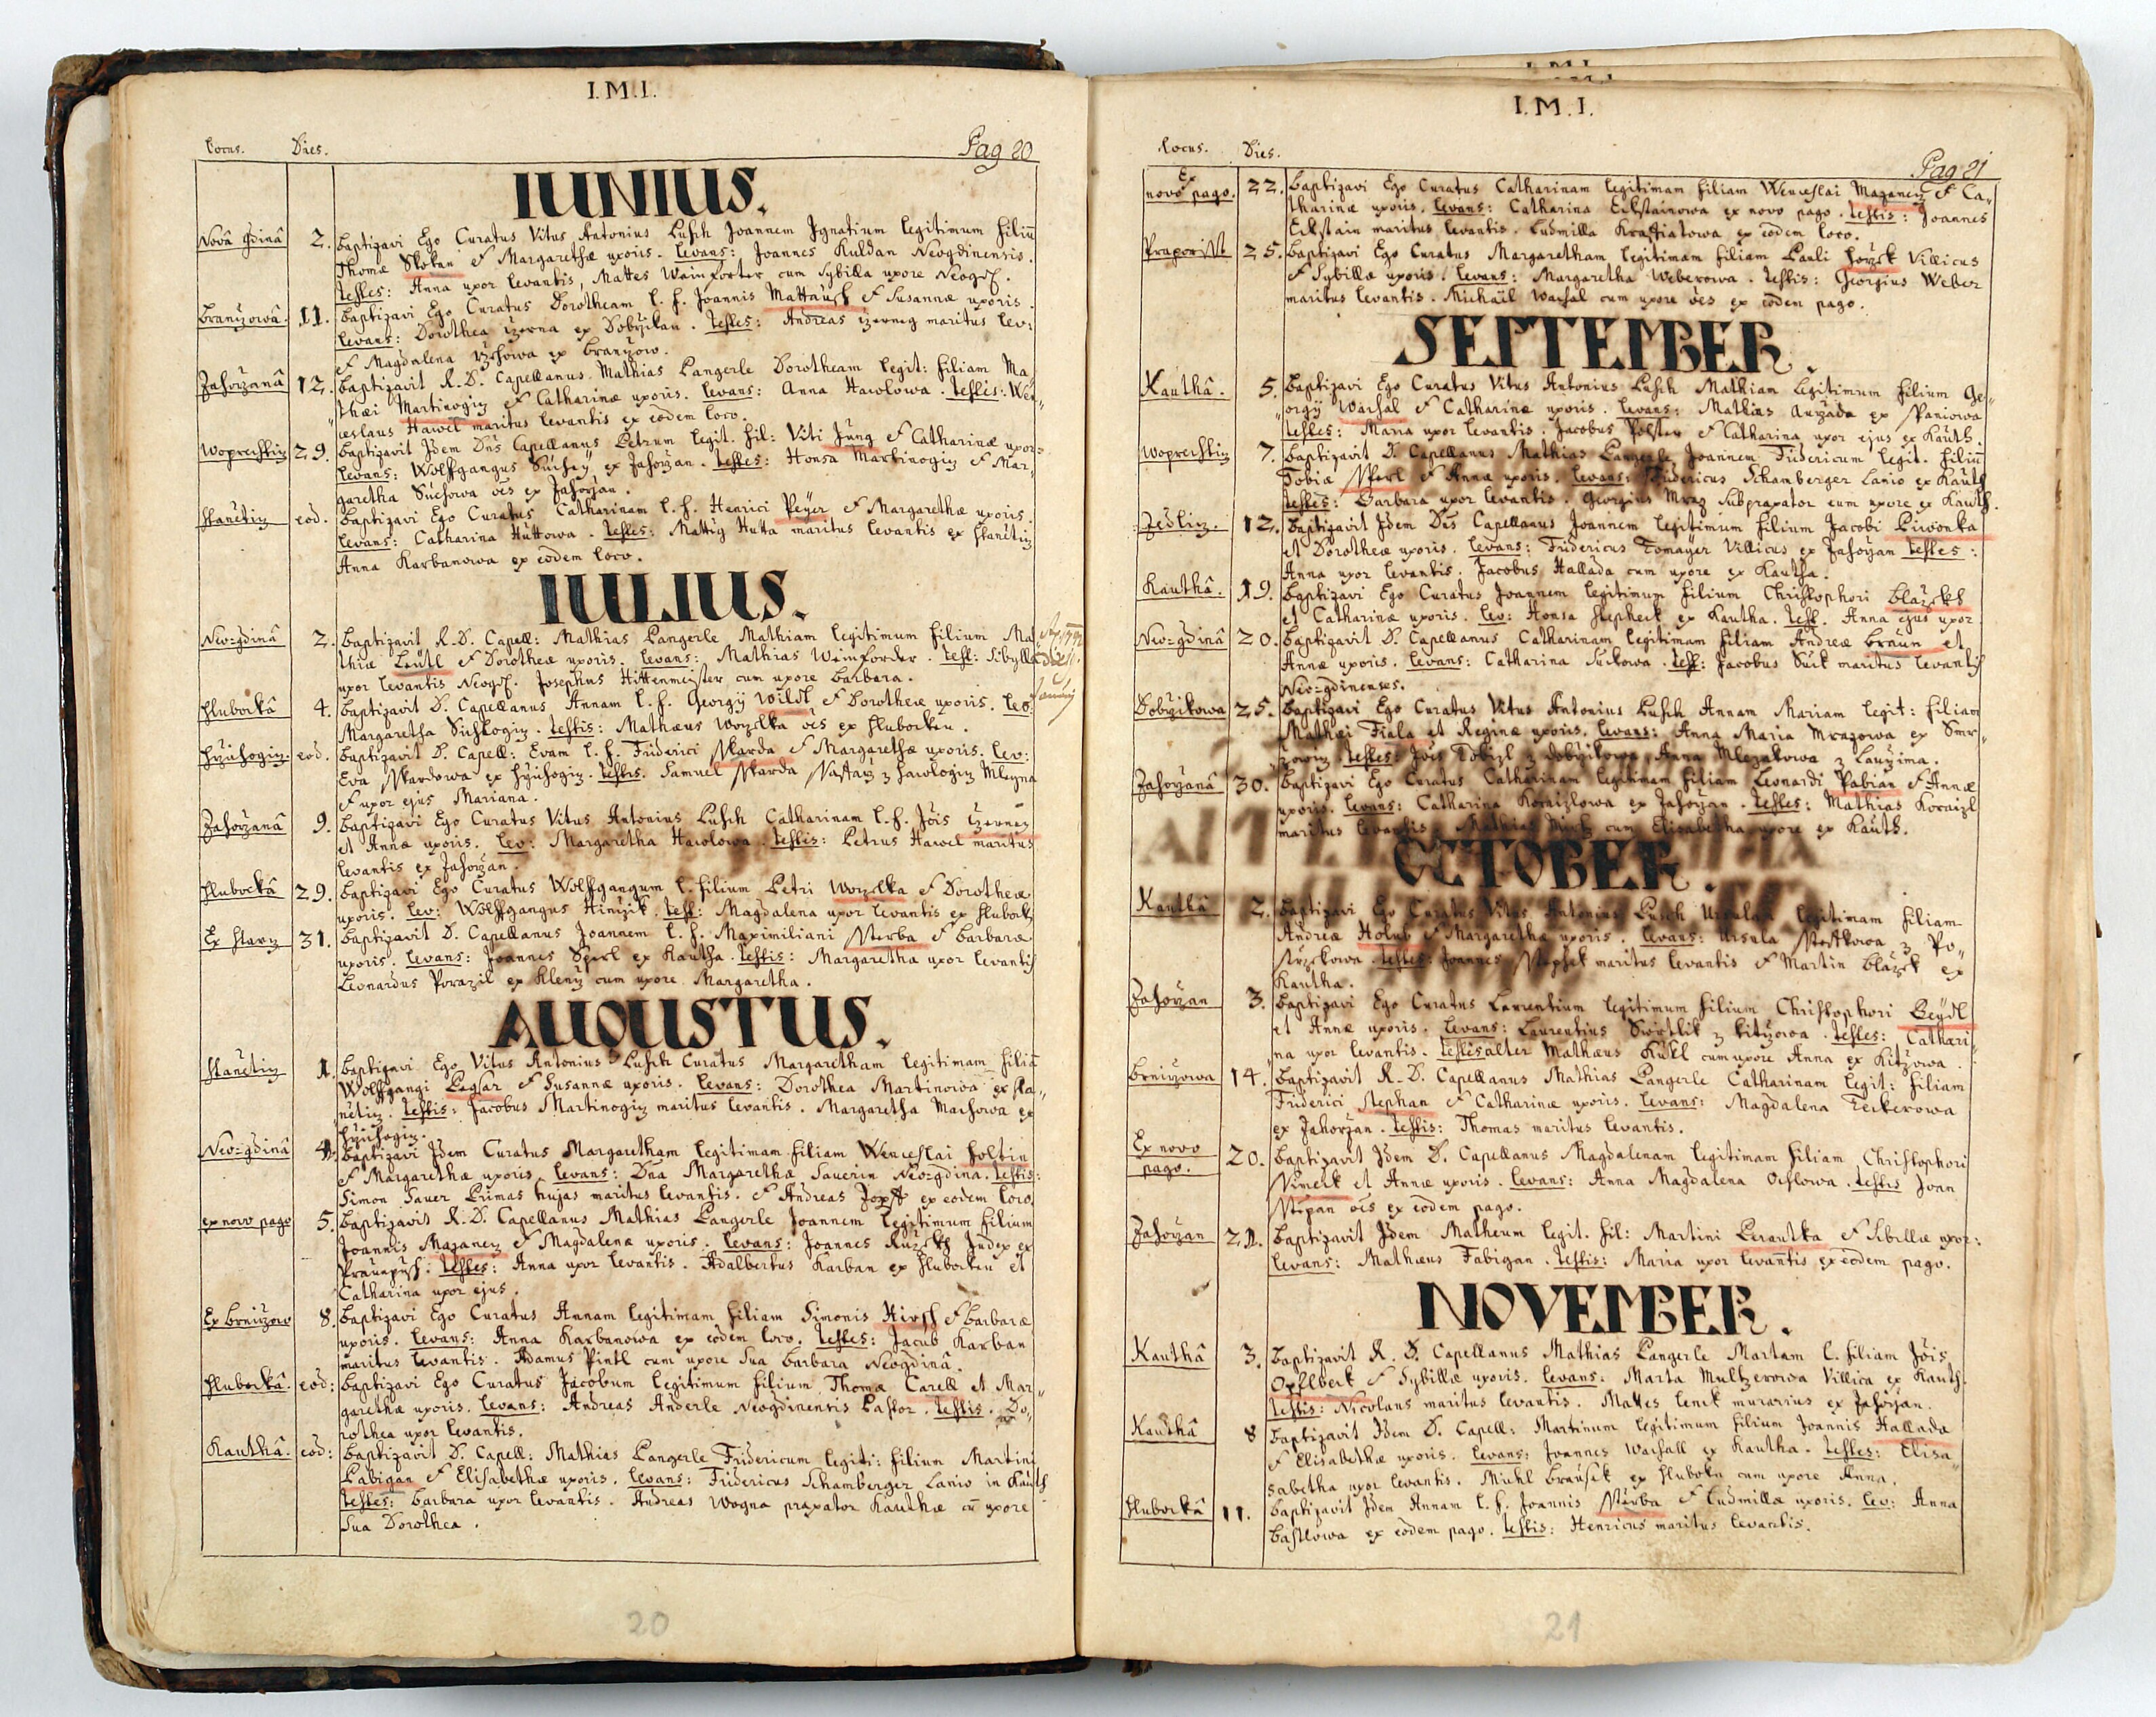 I.M.I.
Locus. Dies. Pag 20
IUNIUS.
Novâ Gdinâ 2. Baptizavi Ego Curatus Vitus Antonius Lusch Joannem Ignatium legitimum filiū
Thomæ Skokan & Margarethæ uxoris. Levans: Joannes Kuldan Neogdinensis.
testes: Anna uxor levantis, Mattes Weinforter cum Sybilla uxore
Branizowâ. 11. Baptizavi Ego Curatus Dorotheam l. f. Joannis Mattausch & Susannæ uxoris.
Levans: Dorothea ex . testes: Andreas maritus lev:
& Magdalena ex Branizow.
Zahorzanâ 12. Baptizavit R. D. Capellanus Mathias Langerle Dorotheam legit: filiam Ma
thæi Martinogiz & Catharinæ uxoris. Levans: Anna Hawlowa. testes: Wen„
ceslaus Hawel maritus levantis ex eodem loco.
Woprechtiz 29. Baptizavit Idem Dñs Capellanus Petrum legit. fil: Viti Jung & Catharinæ uxor=
Levans: Wolffgangus ex Zahorzan. testes: Honsa Martinogiz & Mar„
garetha ex Zahorzan.
Hanetiz eod. Baptizavi Ego Curatus Catharinam l. f. Henrici Peyer & Margarethæ uxoris.
Levans: Catharina Huttowa. testes: Mattig Hutta maritus levantis ex Hanetiz
Anna Karbanowa ex eodem loco.
IULIUS.
Neo=gdinâ 2. Baptizavit R. D. Capell: Mathias Langerle Mathiam legitimum filium Ma
thiæ Leutl & Dorotheæ uxoris. Levans: Mathias Weinforder. test: Sibylla
uxor levantis . Josephus Hittenmeister cum uxore Barbara.
Hlubockâ 4. Baptizavit D. Capellanus Annam l. f. Georgy Wildt & Dorotheæ uxoris. Lev:
Margaretha . testis: Mathæus ex Hlubocken.
eod. Baptizavit D. Capell: Evam l. f. Friderici Skarda & Margarethæ uxoris. Lev:
Eva Skardowa ex . testis: Samuel Skarda
& uxor ejus Mariana.
Zahorzanâ 9. Baptizavi Ego Curatus Vitus Antonius Lusch Catharinam l. f. Jōis
et Annæ uxoris. Lev: Margaretha Hawlowa. testis: Petrus Hawel maritus
levantis ex Zahorzan.
Hlubockâ 29. Baptizavi Ego Curatus Wolffgangum l. filium Petri & Dorotheæ
uxoris. Lev: Wolffgangus . test: Magdalena uxor levantis ex
Ex 31. Baptizavit D. Capellanus Joannem l. f. Maximiliani & Barbaræ
uxoris. Levans: Joannes Sperl ex Kautha. testis: Margaretha uxor levantis
Leonardus ex cum uxore Margaretha.
AUGUSTUS.
Hanetiz 1. Baptizavi Ego Vitus Antonius Lusch Curatus Margaretham legitimam filiā
Wolffgangi & Susannæ uxoris. Levans: Dorothea Martinowa ex Ha„
netiz. testis: Jacobus Martinogiz maritus levantis. Margaretha Machowa ex
Neo=gdinâ 4. Baptizavi Idem Curatus Margaretham legitimam filiam Wenceslai Holtin
& Margarethæ uxoris. Levans: Dña Margaretha Sauerin Neo=gdina. testis:
Simon Sauer Primas hujas maritus levantis. & Andreas ex eodem loco.
ex novo pago 5. Baptizavit R. D. Capellanus Mathias Langerle Joannem legitimum filium
Joannis Mazanez & Magdalenæ uxoris. Levans: Joannes Judex ex
. testes: Anna uxor levantis. Adalbertus Karban ex Hlubocken et
Catharina uxor ejus.
Ex 8. Baptizavi Ego Curatus Annam legitimam filiam Simonis & Barbaræ
uxoris. Levans: Anna Karbanowa ex eodem loco. testes: Jacub Karban
maritus levantis. Adamus Pintl cum uxore sua Barbara Neogdinâ.
Hlubockâ. eod: Baptizavi Ego Curatus Jacobum legitimum filium Thomæ Carell et Mar„
garethæ uxoris. Levans: Andreas Anderle Neogdinensis Pastor. testis. Do„
rothea uxor levantis.
Kauthâ. eod: Baptizavit D. Capell: Mathias Langerle Fridericum legiti: filium Martini
Pabigan & Elisabethæ uxoris. Levans: Fridericus Schamberger Lanio in Kauth
testes: Barbara uxor levantis. Andreas Wogna praxator Kauthæ cū uxore
sua Dorothea.
20
I.M.I.
Locus. Dies. Pag 21
Ex novo pago. 22. Baptizavi Ego Curatus Catharinam legitimam filiam Wenceslai Mazanez & Ca„
tharinæ uxoris. Levans: Catharina Eckstainowa ex novo pago. testis: Joannes
Eckstain maritus levantis. Ludmilla ex eodem loco.
25. Baptizavi Ego Curatus Margaretham legitimam filiam Pauli Villicus
& Sybillæ uxoris. Levans: Margaretha Weberowa. testis: Georgius Weber
maritus levantis. Michäil cum uxore ex eodem pago.
SEPTEMBER.
Kauthâ. 5. Baptizavi Ego Curatus Vitus Antonius Lusch Mathiam legitimum filium Ge„
„orgÿ Wachal & Catharinæ uxoris. Levans: Mathias ex
testes: Maria uxor levantis. Jacobus & Catharina uxor ejus ex Kauth.
Woprechtiz 7. Baptizavit D. Capellanus Mathias Langerle Joannem Fridericum legit. filiū
Tobiæ Sperl & Annæ uxoris. Levans: Fridericus Schamberger Lanio ex Kauth
testes: Barbara uxor levantis. Georgius Mraz Subpraxator cum uxore ex Kauth.
12. Baptizavit Idem Dñs Capellanus Joannem legitimum filium Jacobi Piwonka
et Dorotheæ uxoris. Levans: Fridericus Tomayer Villicus ex Zahorzan testes:
Anna uxor levantis. Jacobus Hallada cum uxore ex Kautha.
Kauthâ. 19. Baptizavi Ego Curatus Joannem legitimum filium Christophori
et Catharinæ uxoris. Lev: Honsa ex Kautha. test. Anna ejus uxor
Neo=gdinâ 20. Baptizavit D. Capellanus Catharinam legitimam filiam Andreæ Braun et
Annæ uxoris. Levans: Catharina Suckowa. test: Jacobus Suck maritus levantis
Neo=gdinenses.
25. Baptizavi Ego Curatus Vitus Antonius Lusch Annam Mariam legit: filiam
Mathæi Fiala et Reginæ uxoris. Levans: Anna Maria Mrazowa ex
testes: Anna
Zahorzanâ 30. Baptizavi Ego Curatus Catharinam legitimam filiam Leonardi Pabian & Annæ
uxoris. Levans: Catharina ex Zahorzan. testes: Mathias
maritus levantis. Mathias cum Elisabetha uxore ex Kauth.
OCTOBER.
Kauthâ 2. Baptizavi Ego Curatus Vitus Antonius Lusch Ursulam legitimam filiam
Andreæ Holub & Margarethæ uxoris. Levans: Ursula
testes: Joannes maritus levantis & Martin ex
Kautha.
Zahorzan 3. Baptizavi Ego Curatus Laurentium legitimum filium Christophori
et Annæ uxoris. Levans: Laurentius z . testes: Cathari„
„na uxor levantis. testes alter Mathæus cum uxore Anna ex
14. Baptizavit R. D. Capellanus Mathias Langerle Catharinam legit: filiam
Friderici Stephan & Catharinæ uxoris. Levans: Magdalena
ex Zahorzan. testis: Thomas maritus levantis.
Ex novo pago. 20. Baptizavit Idem D. Capellanus Magdalenam legitimam filiam Christophori
et Annæ uxoris. Levans: Anna Magdalena . testis Joan
ex eodem pago.
Zahorzan 21. Baptizavit Idem Matheum legit. fil: Martini & Sibillæ uxor:
Levans: Mathæus Fabigan. testis: Maria uxor levantis ex eodem pago.
NOVEMBER.
Kauthâ 3. Baptizavit R. D. Capellanus Mathias Langerle Martam l. filiam Jōis
& Sybillæ uxoris. Levans: Marta Multzerowa Villica ex Kauth.
testis: Nicolaus maritus levantis. Mattes murarius ex Zahorzan.
Kauthâ 8 Baptizavit Idem D. Capell: Martinum legitimum filium Joannis Hallada
& Elisabethæ uxoris. Levans: Joannes Wachall ex Kautha. testes: Elisa„
sabetha uxor levantis. Michl ex cum uxore Anna.
Hlubockâ 11. Baptizavit Idem Annam l. f. Joannis & Ludmillæ uxoris. Lev: Anna
ex eodem pago. testis: Henricus maritus levantis.
21